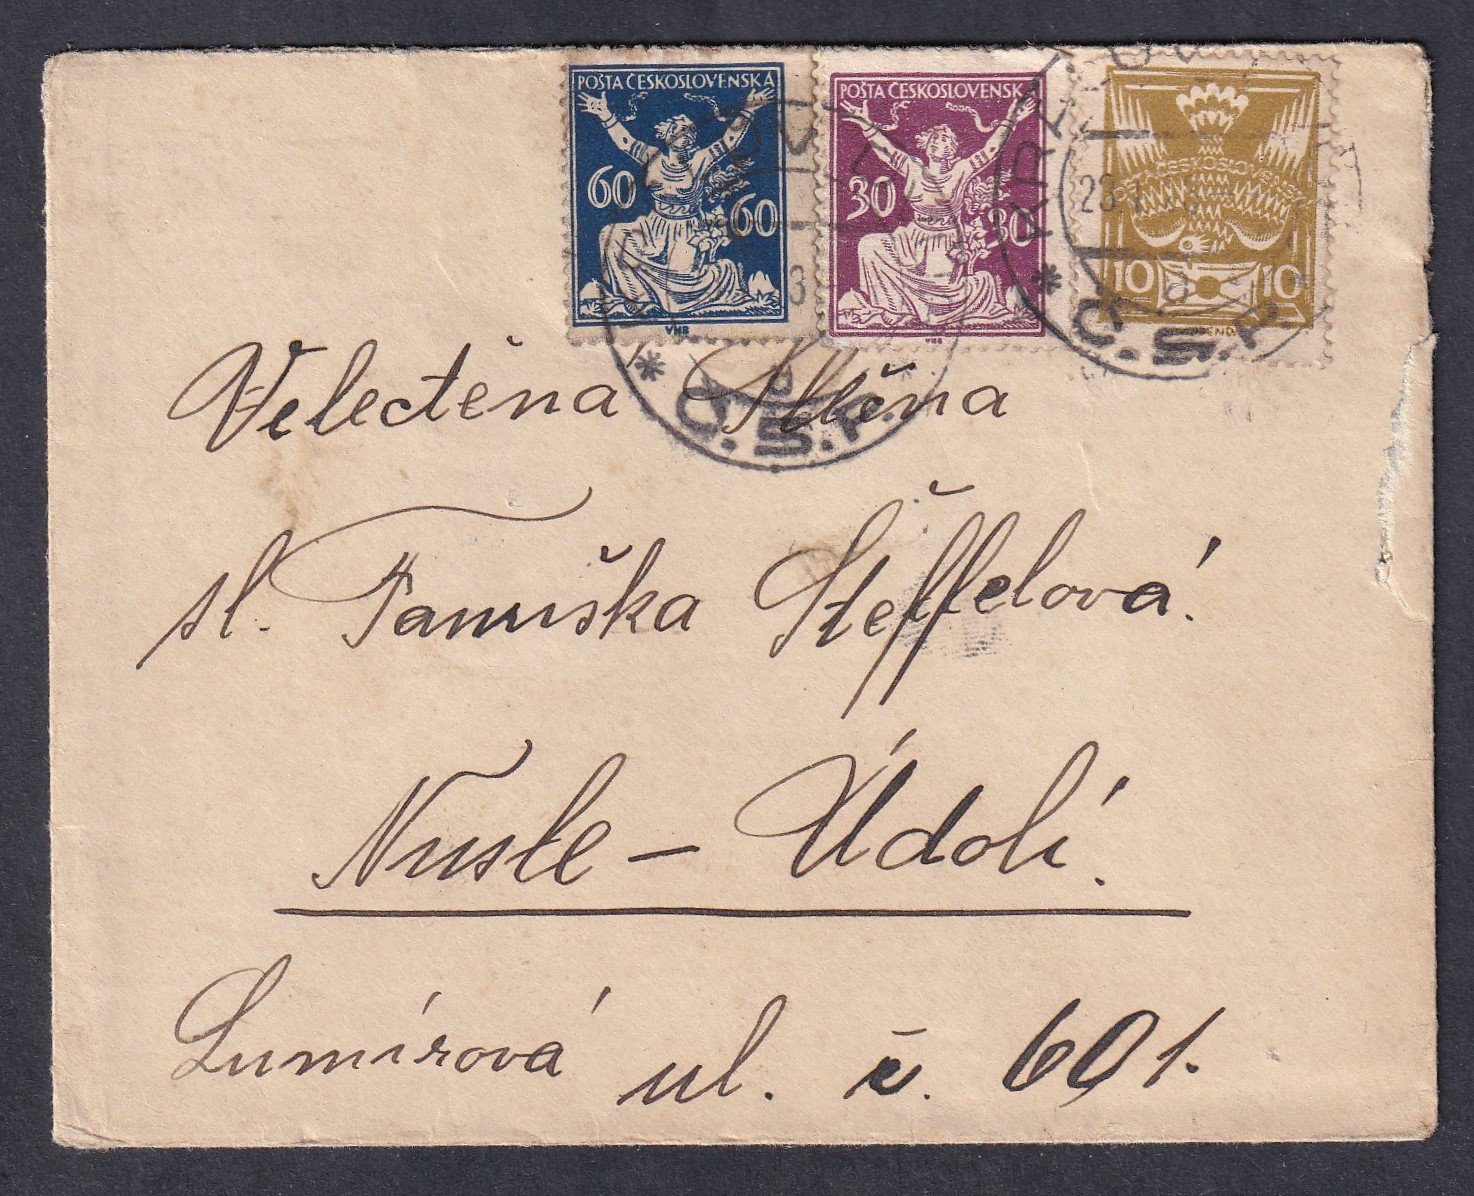 POŠTA ČESKOSLOVENSKÁ
60 60
VHB
POŠTA ČESKOSLOVENSK
30 30
VHB
ČESKOSLOVENSKÁ
10 10
* Č.S.P. *
* Č.S.P.
Velectěna Slečna
sl. Fanuška Šteffelová.
Nusle – Údolí.
Lumírová ul. č. 601.